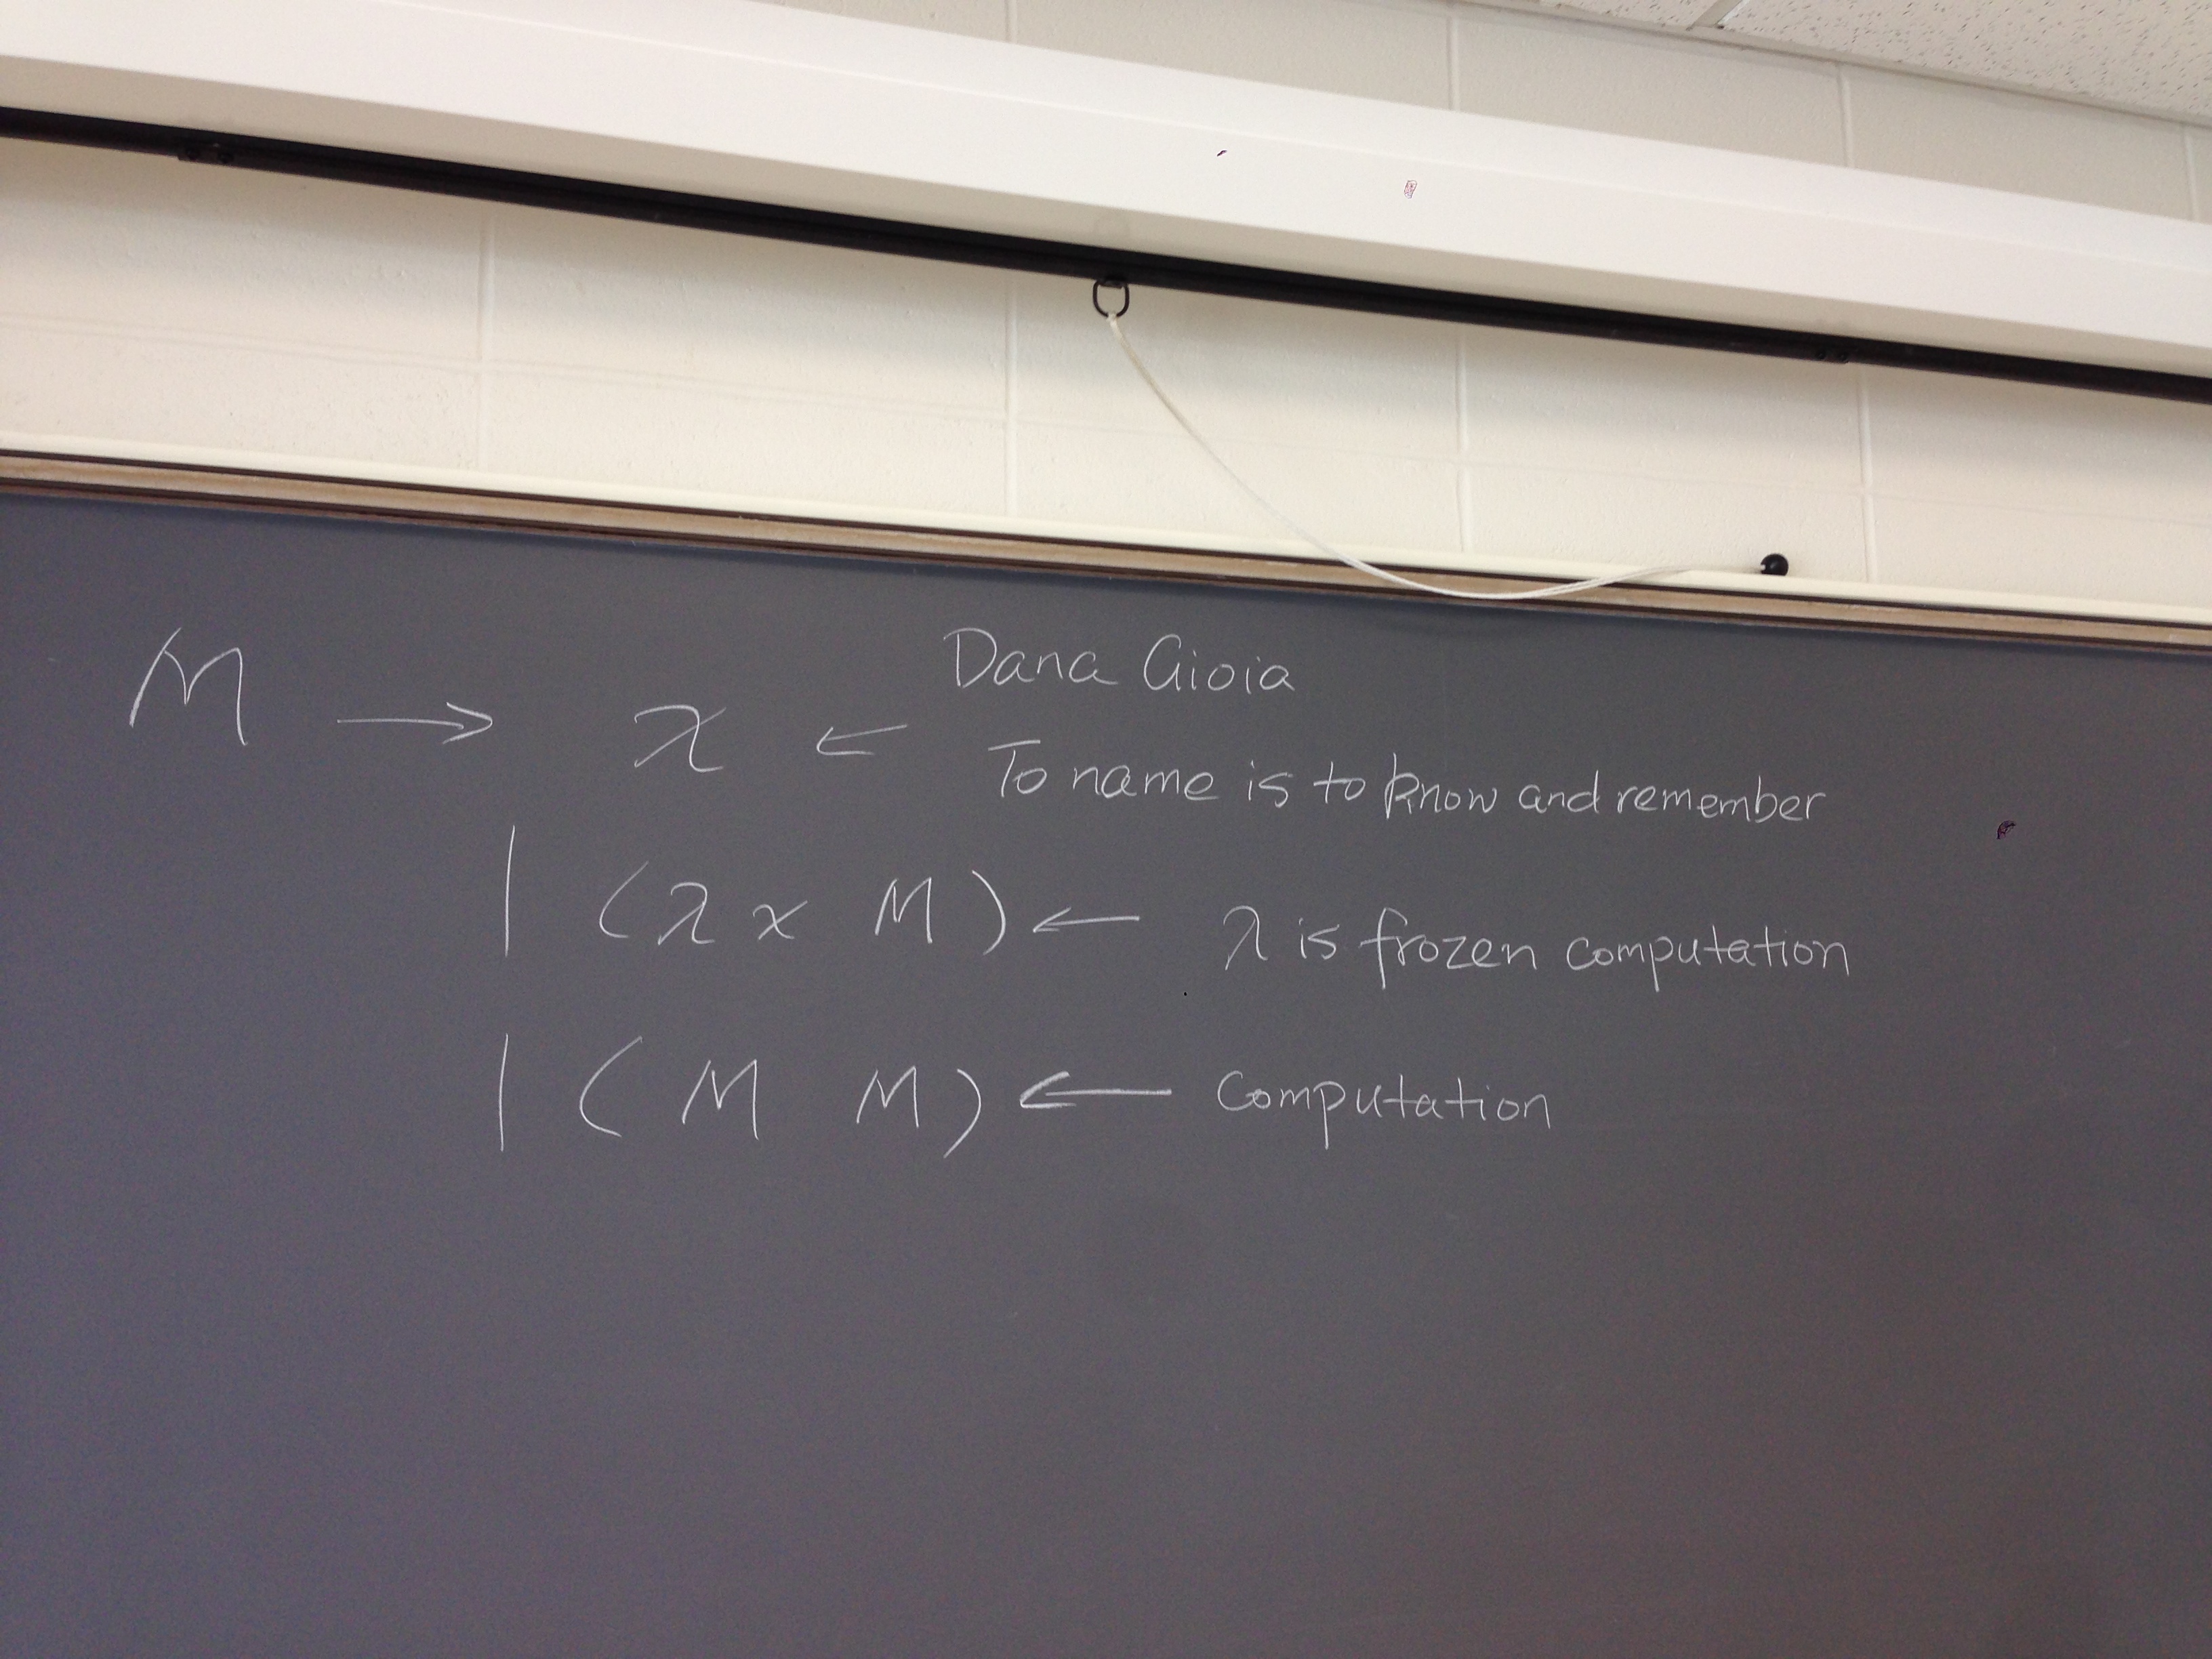 Dana Gioia
M → x ← To name is to know and remember
| (λx M) ← λ is frozen computation
| (M M) ← Computation